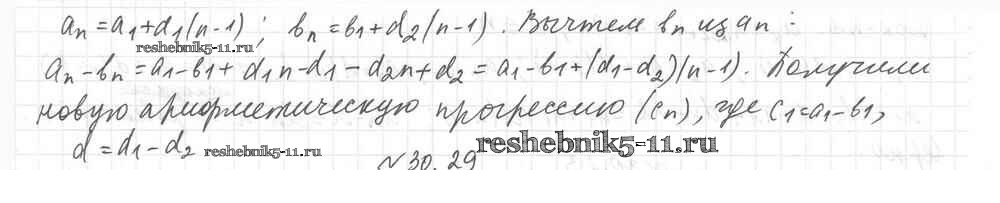 an = a1 + d1(n-1); bn = b1 + d2(n-1). Вычтем bn из an:
reshebnik5-11.ru
an - bn = a1 - b1 + d1n - d1 - d2n + d2 = a1 - b1 + (d1 - d2)(n-1). Получили
новую арифметическую прогрессию (cn), где c1 = a1 - b1,
d = d1 - d2 reshebnik5-11.ru reshebnik5-11.ru
№30.29